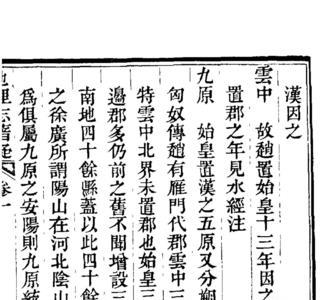 漢因之
雲中　故趙置始皇十三年因之
置郡之年見水經注
九原　始皇置漢之五原又分朔
匈奴傳趙有雁門代郡雲中三
特雲中北界未置郡也始皇三
邊郡多仍前之舊不聞增設三
南地四十餘縣蓋以此四十餘
之徐廣所謂陽山在河北陰山
為俱屬九原之安陽則九原統
地理志
卷一